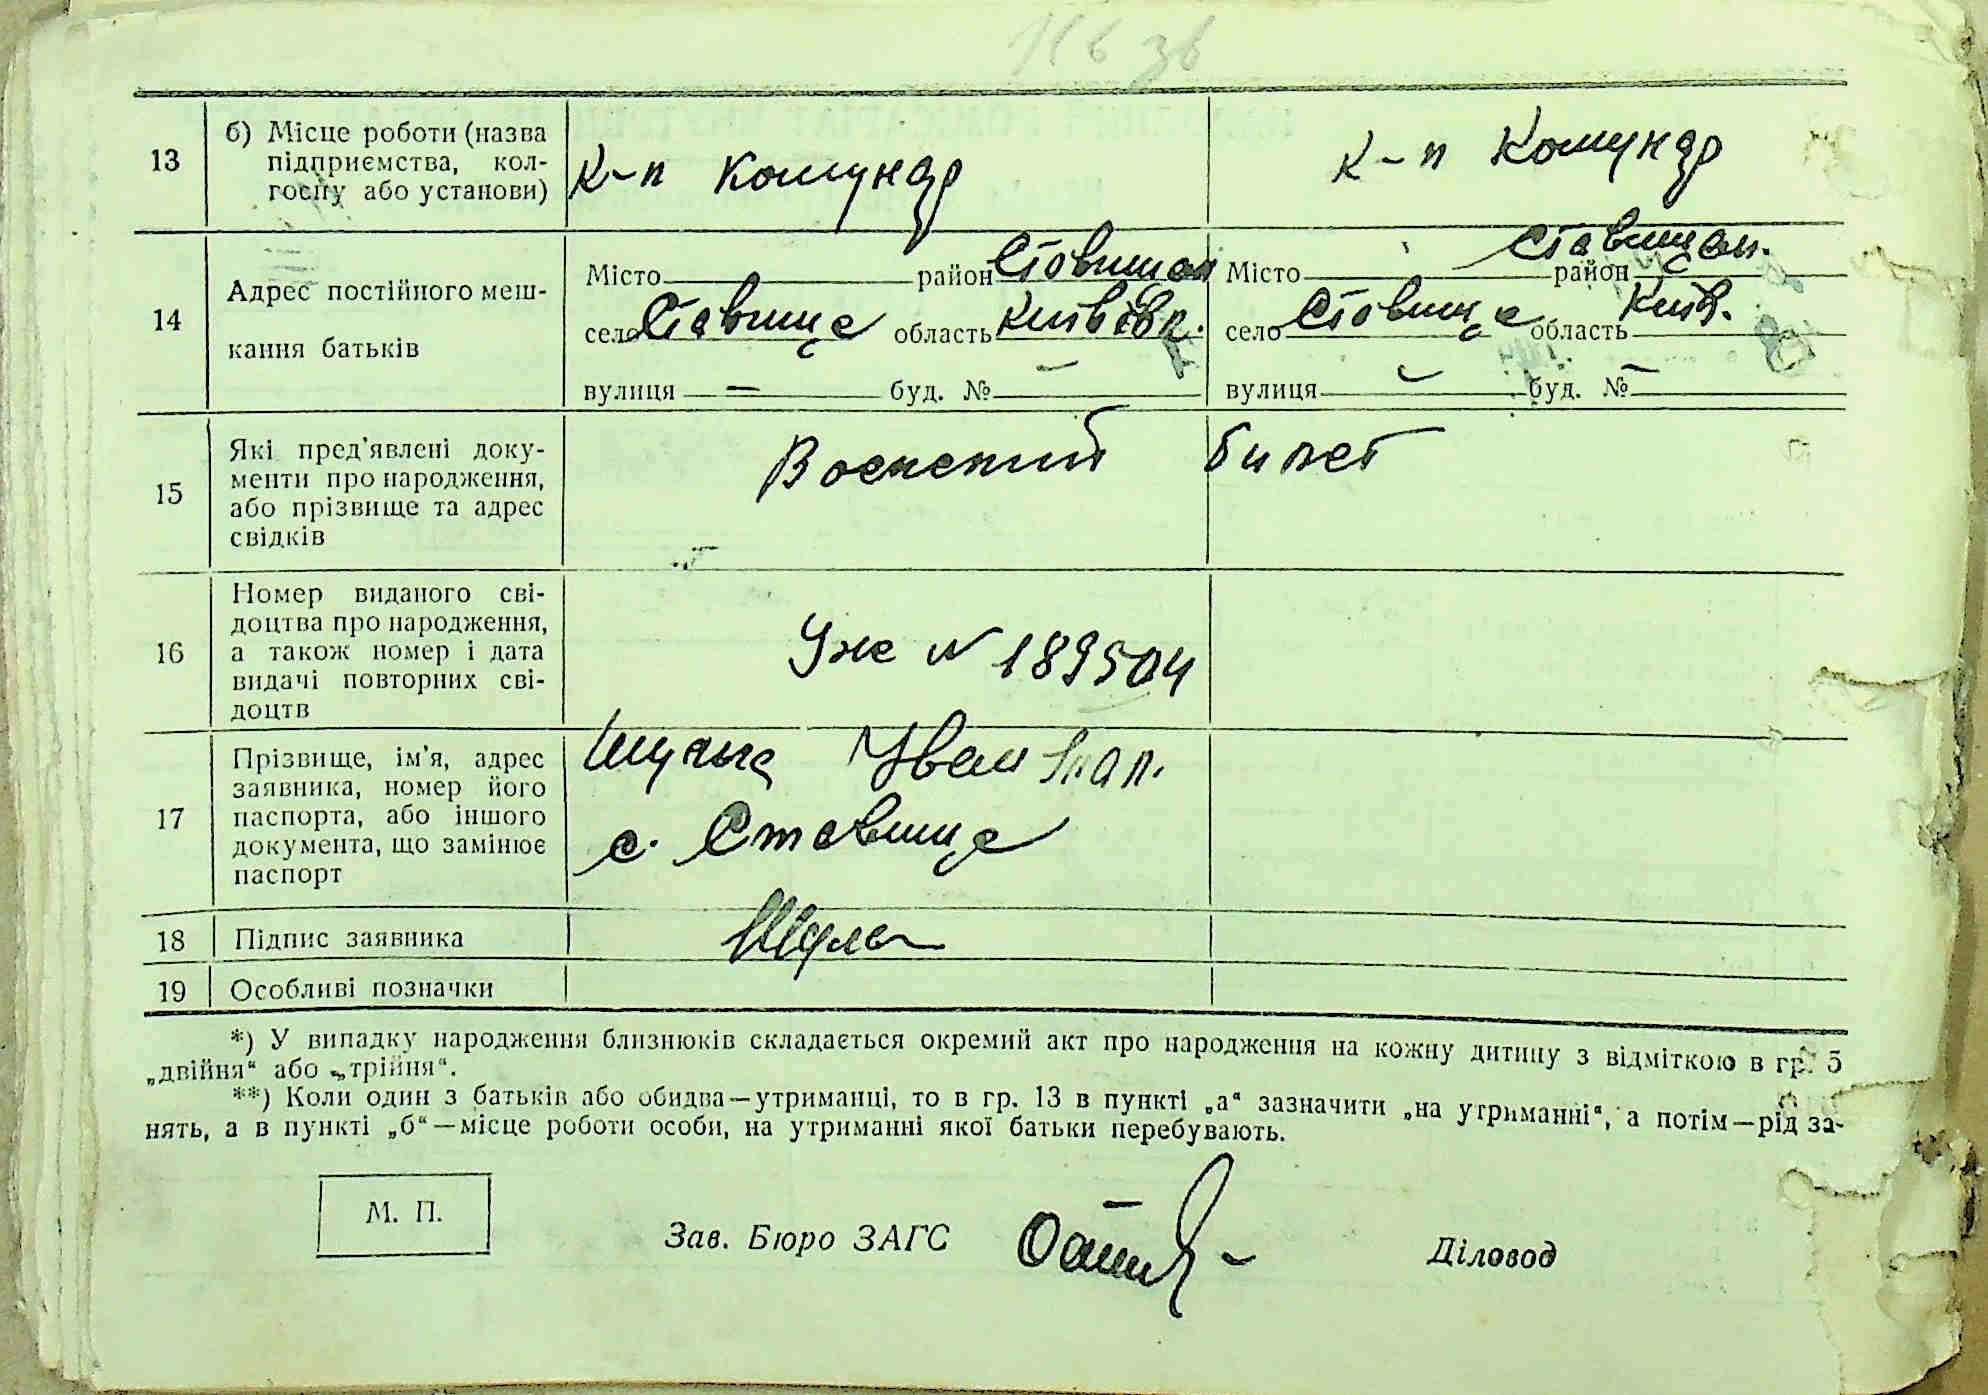 116 зв
13
б) Місце роботи (назва
підприємства, кол-
госпу або установи)
к-п Комунар
к-п Комунар
14
Адрес постійного меш-
кання батьків
Місто район Ставищан
село Ставище область Київськ.
вулиця — буд. № —
Місто район Ставищан.
село Ставище область Київ.
вулиця — буд. № —
15
Які пред'явлені доку-
менти про народження,
або прізвище та адрес
свідків
Воєнский билет
16
Номер виданого сві-
доцтва про народження,
а також номер і дата
видачі повторних сві-
доцтв
Уже № 189504
17
Прізвище, ім'я, адрес
заявника, номер його
паспорта, або іншого
документа, що замінює
паспорт
Іван
с. Ставище
18
Підпис заявника
19
Особливі позначки
*) У випадку народження близнюків складається окремий акт про народження на кожну дитину з відміткою в гр. 5
„двійня“ або „трійня“.
**) Коли один з батьків або обидва—утриманці, то в гр. 13 в пункті „а“ зазначити „на утриманні“, а потім—рід за-
нять, а в пункті „б“—місце роботи особи, на утриманні якої батьки перебувають.
М. П.
Зав. Бюро ЗАГС
Діловод